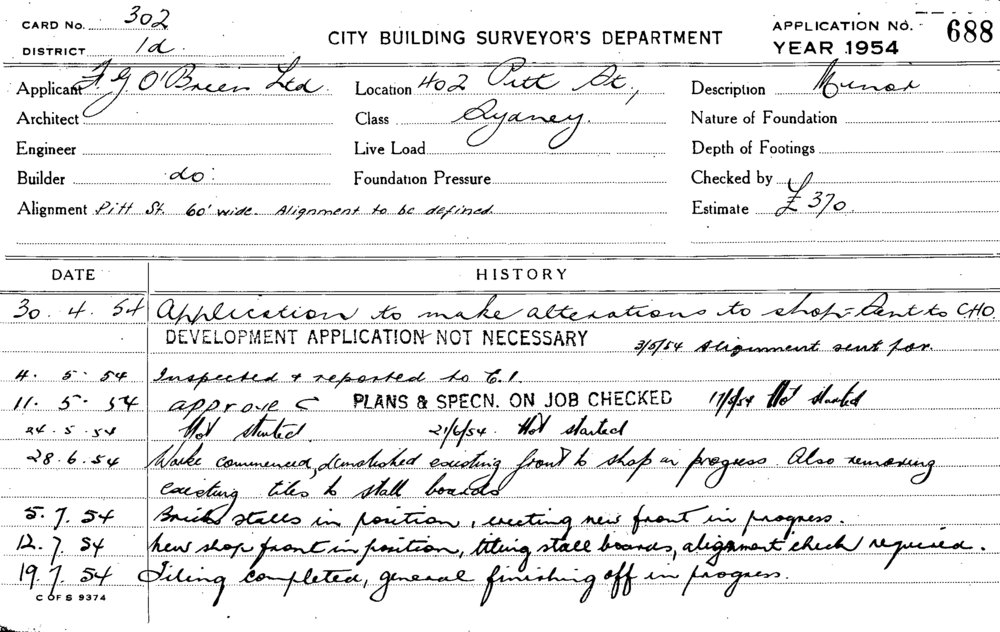 CARD No. 302
DISTRICT 1d.
CITY BUILDING SURVEYOR'S DEPARTMENT
APPLICATION No. 688
YEAR 1954
Applicant F. G. O'Brien Ltd. Location 402 Pitt St., Description Minor
Architect Class Sydney. Nature of Foundation
Engineer Live Load Depth of Footings
Builder do. Foundation Pressure Checked by
Alignment Pitt St. 60' wide. Alignment to be defined. Estimate £370.
DATE HISTORY
30.4.54 Application to make alterations to shop - Sent to CHO.
DEVELOPMENT APPLICATION NOT NECESSARY 3/5/54 Alignment sent for.
4.5.54 Inspected & reported to C.I.
11.5.54 approve PLANS & SPECN. ON JOB CHECKED 17/5/54 Not started
24.5.54 Not started. 21/6/54. Not started
28.6.54 Works commenced, demolished existing front to shop in progress. Also removing
existing tiles to stall boards
5.7.54 Brick stalls in position, erecting new front in progress.
12.7.54 New shop front in position, tiling stall boards, alignment check required.
19.7.54 Tiling completed, general finishing off in progress.
C OF S 9374